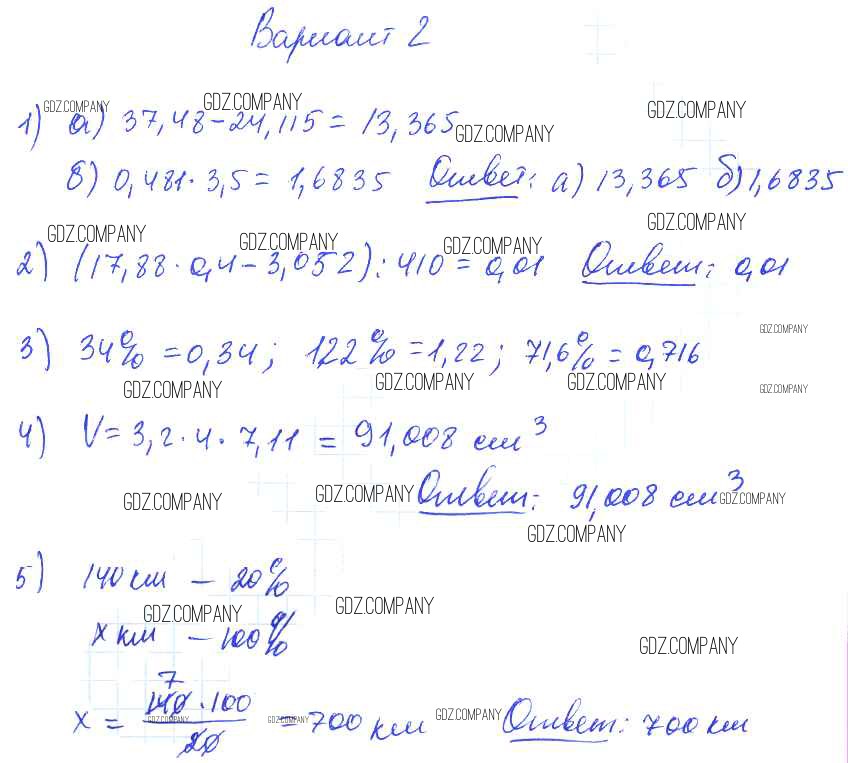 Вариант 2
GDZ.COMPANY GDZ.COMPANY GDZ.COMPANY
1) а) 37,48-24,115 = 13,365 GDZ.COMPANY
б) 0,481·3,5 = 1,6835 Ответ: а) 13,365 б) 1,6835
GDZ.COMPANY GDZ.COMPANY GDZ.COMPANY GDZ.COMPANY
2) (17,88·0,4-3,052):410 = 0,01 Ответ: 0,01
GDZ.COMPANY
3) 34% = 0,34; 122% = 1,22; 71,6% = 0,716
GDZ.COMPANY GDZ.COMPANY GDZ.COMPANY GDZ.COMPANY
4) V = 3,2·4·7,11 = 91,008 см³
GDZ.COMPANY GDZ.COMPANY Ответ: 91,008 см³ GDZ.COMPANY
GDZ.COMPANY
5) 140 км - 20%
GDZ.COMPANY GDZ.COMPANY
x км - 100%
GDZ.COMPANY
7
x = 140·100 / 20 = 700 км Ответ: 700 км
GDZ.COMPANY GDZ.COMPANY GDZ.COMPANY